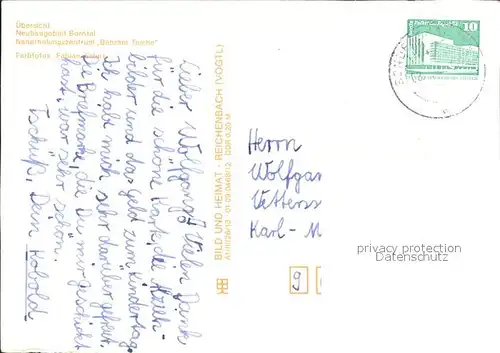 Übersicht
Neubaugebiet Barntal
Naherholungszentrum „Bebraer Teiche"
Farbfotos:
BILD UND HEIMAT · REICHENBACH (VOGTL)
DDR 0,20 M
Lieber Wolfgang! Vielen Dank
für die schöne Karte, die Abzieh-
bilder und das Geld zum Kindertag.
Ich habe mich sehr darüber gefreut.
Die Briefmarke, die Du mir geschickt
hast, war sehr schön.
Tschüß, Dein Kobold
10
Herrn
Wolfgan
Karl-M
9
privacy protection
Datenschutz